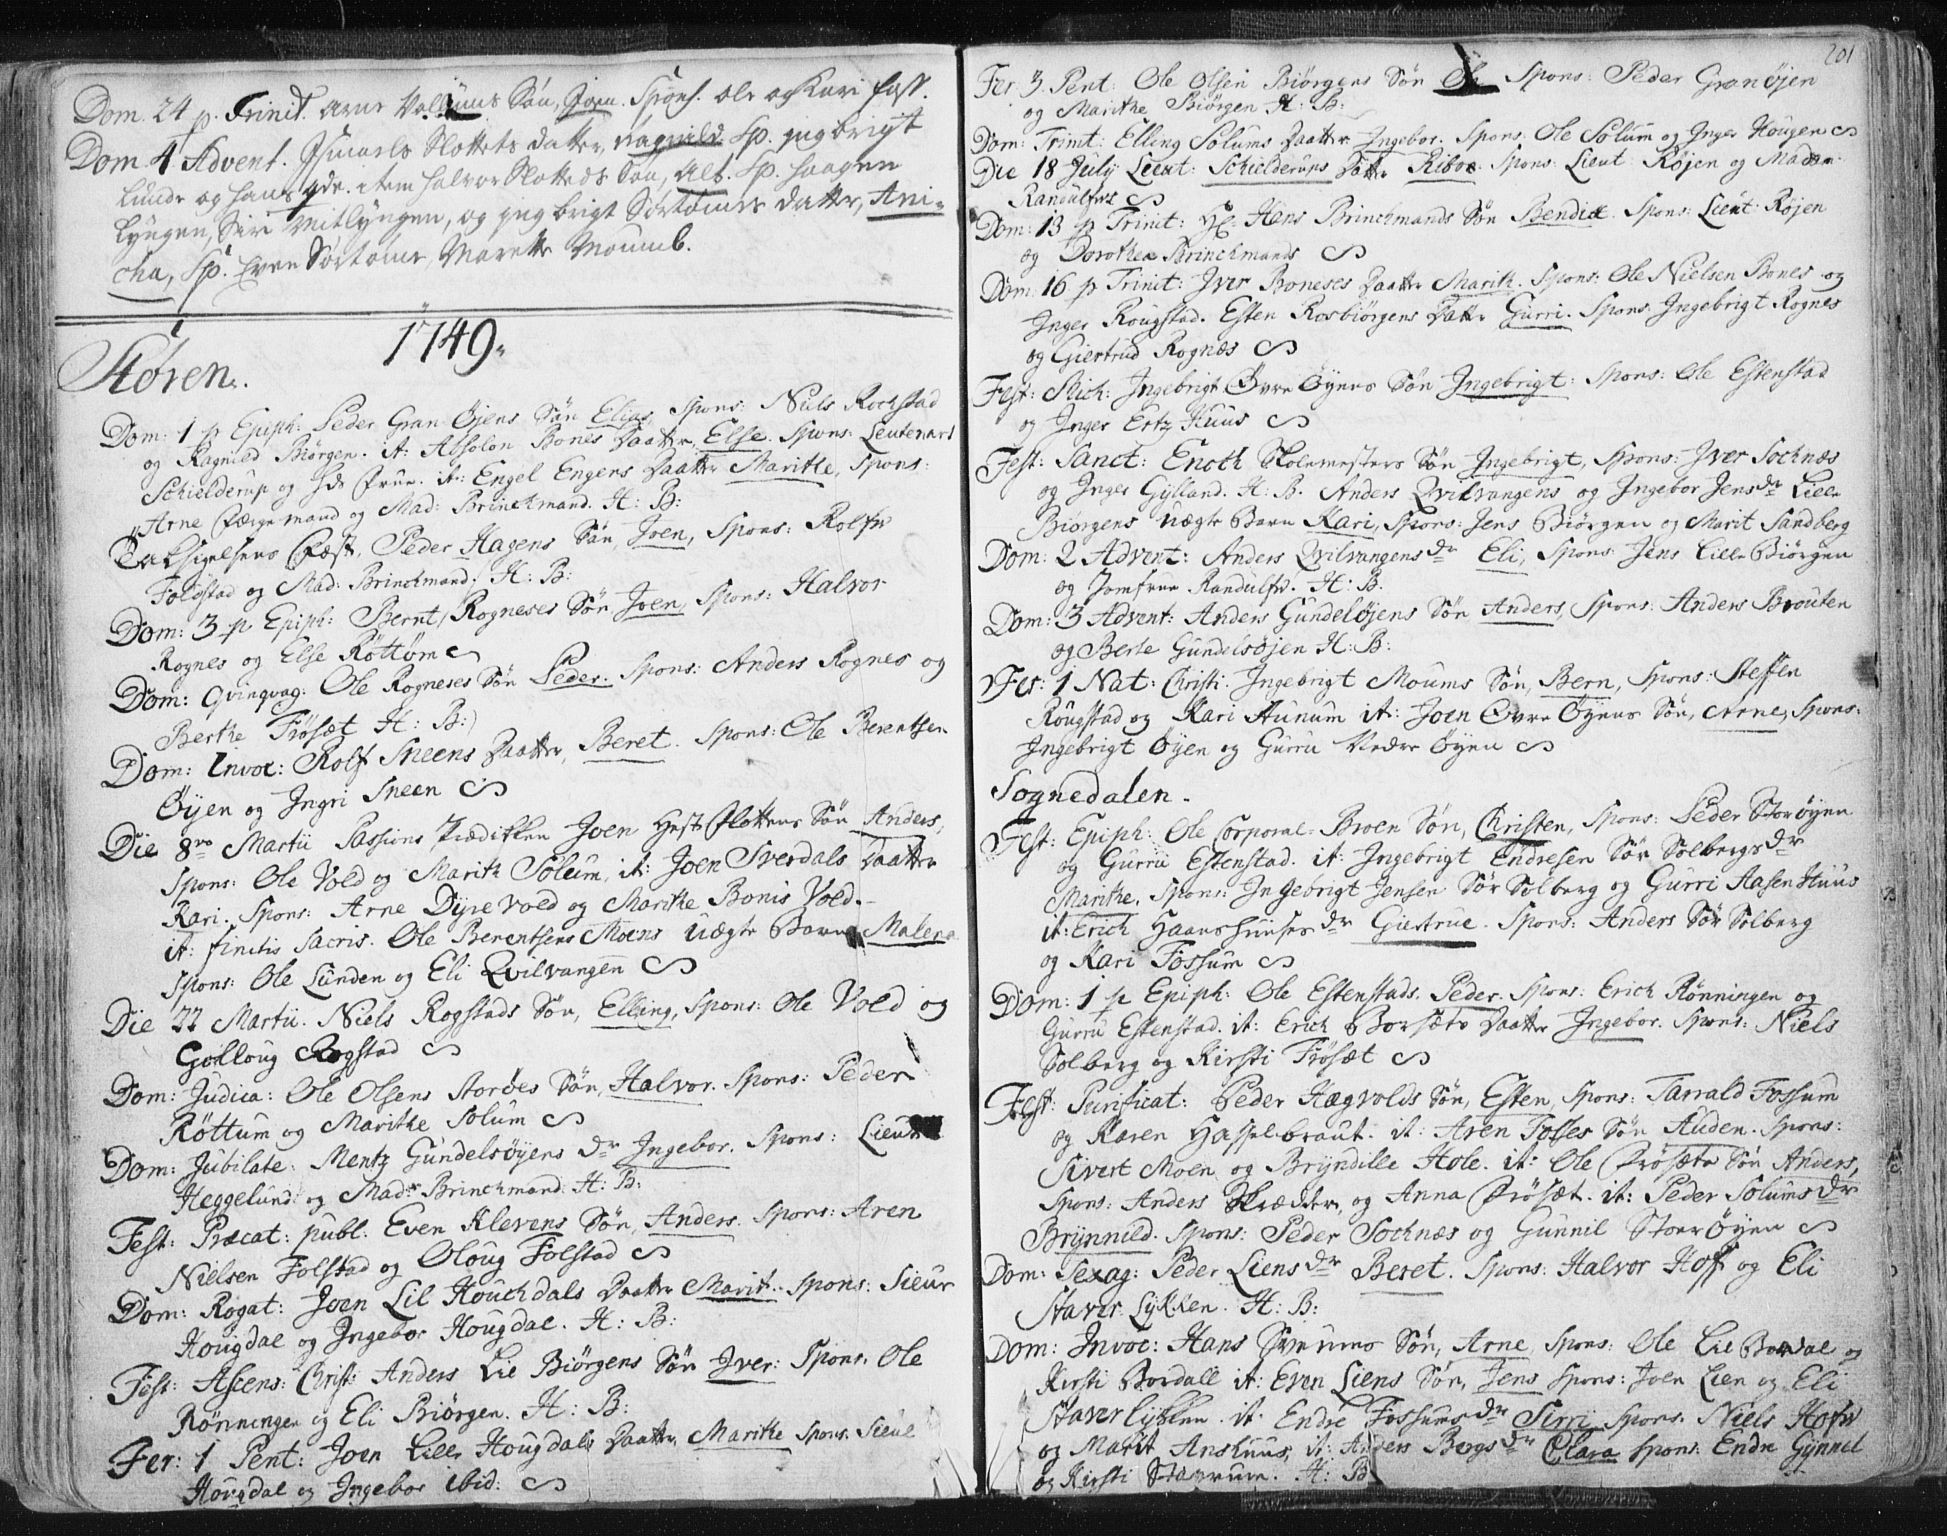 Dom. 24 p. Trinit. Arne Søn, Joen. Spons. Ole og Kari
Dom 4 Advent. Ismaels Slottets datter, Ragnild. Sp. Ingbrigt
Lunde og hans item Halvor Slotteds Søn, Sp. Haagen
Lyngen, Siri Mitlyngen, og Ingbrigt Sortømes datter, Ani-
cha, Sp. Even Sortøme, Marette Moumb.
1749.
Støren.
Dom: 1 p Epiph: Peder Gran Øjens Søn Elias, Spons: Niels Rochstad
og Ragnild Biörgen. it: Absolon Bones Daatter, Else. Spons: Leutenant
Schielderup og Frue. it: Engel Engens Daatter Marithe, Spons:
Arne Færgemand og Mad: Brinchmand. H: B:
Taksigelsens Fæst, Peder Hagens Søn, Joen, Spons: Rolfv
Folstad og Mad: Brinchmand. H: B:
Dom: 3 p Epiph: Bernt Rogneses Søn Joen, Spons: Halvor
Rognes og Else Röttöm
Dom: Qvinqvag: Ole Rogneses Søn Peder. Spons: Anders Rognes og
Berthe Frösæt H: B:
Dom: Invoc: Rolf Sneens Daatter, Beret. Spons: Ole Berentsen
Øijen og Ingri Sneen
Die 8vo Martii Passions Prædiken Joen Hest Flottens Søn Anders,
Spons: Ole Vold og Marith Solum, it: Joen Sverdals Daatter
Kari. Spons: Arne Dyre Vold og Marithe Bonis Vold.
it: finitis sacris. Ole Berentsens Moens Uægte Barn Malena
Spons: Ole Lunden og Eli Qvilvangen
Die 22 Martii. Niels Rogstads Søn, Elling, Spons: Ole Vold og
Golloug Rogstad
Dom: Judica: Ole Olsens Storöes Søn, Halvor. Spons: Peder
Röttum og Marithe Solum
Dom: Jubilate: Mentz Gundelsøyens Dr Ingebor. Spons: Lieut
Heggelund og Mad: Brinchmand. H: B:
Fest: Præcat: publ: Even Klevens Søn, Anders. Spons: Aren
Nielsen Folstad og Oloug Folstad
Dom: Rogat: Joen Lil Houchdals Daatter Marit. Spons: Sieur
Hougdal og Ingebor Hougdal. H: B:
Fest: Ascens: Christi: Anders Lie Biörgens Søn Iver: Spons: Ole
Rönningen og Eli Biörgen. H: B:
Fer: 1 Pent: Joen Lille Hougdals Daatter Marithe Spons: Sieur
Hougdal og Ingebor ibid:
201
Fer 3. Pent: Ole Olsen Biörgens Søn Ole Spons: Peder Granöjen
og Marithe Biörgen H: B:
Dom: Trinit: Elling Solums Daatter Ingebor. Spons: Ole Solum og Inger Hougen
Die 18 July Lieut: Schielderups Datter Spons: Lieut Röjen og Madm
Randulfvs
Dom: 13 p Trinit: Hr: Hans Brinchmands Søn Bendix. Spons: Lieut Röjen
og Dorothea Brinchmands
Dom: 16 p Trinit: Iver Boneses Daatter Marith. Spons: Ole Nielsen Bones og
Inger Rougstad. Esten Rosbiörgens Datter Gurri. Spons: Ingebrigt Rognes
og Giertrud Rognæs
Fest: Mich: Ingebrigt Övre Öyens Søn Ingebrigt: Spons: Ole Estenstad
og Inger Ertz Huus
Fest: Sanct: Enoch Skolemesters Søn Ingebrigt, Spons: Iver Sochnæs
og Inger Gylland. H: B. Anders Qvilvangens og Ingebor Jensdr Lille
Biörgens uægte Barn Kari, Spons: Jens Biörgen og Marit Sandberg
Dom: 2 Advent: Anders Qvilvangens dr Eli, Spons: Jens Lille Biörgen
og Jomfrue Randulfv. H: B.
Dom: 3 Advent: Anders Gundelöjens Søn Anders, Spons: Anders Brouten
og Berte Gundelsöjen H: B:
Fer: 1 Nat: Christi: Ingebrigt Moums Søn, Bern, Spons: Steffen
Rougstad og Kari Aunum it: Joen Övre Öyens Søn, Arne, Spons:
Ingebrigt Öyen og Gurru Nedre Öyen
Sognedalen.
Fest: Epiph: Ole Corporal-Broen Søn, Christen, Spons: Peder Storöyen
og Gurru Estenstad. it: Ingebrigt Endresen Sör Solbergs dr
Marithe, Spons: Ingebrigt Jensen Sör Solberg og Gurri Aasen Huus
it: Erich Haanshuuses dr Giertrue. Spons: Anders Sör Solberg
og Kari Fossum
Dom: 1 p Epiph: Ole Estenstads. Peder. Spons: Erich Rönningen og
Gurru Estenstad. it: Erich Borsæts Daatter Ingebor. Spons: Niels
Solberg og Kirsti Frösæt
Fest: Purificat: Peder Hægvolds Søn, Esten, Spons: Tarrald Fossum
og Karen Hasselbraut. it: Aren Fosses Søn Auden. Spons:
Sivert Moen og Bryndille Hole. it: Ole Frösæts Søn Anders,
Spons: Anders Skrædder, og Anna Frösæt. it: Peder Solums dr
Brynnild. Spons: Peder Sochnæs og Gunnil Storöyen
Dom: Sexag: Peder Liens dr Beret. Spons: Halvor Hoff og Eli
Staver Lykken. H: B:
Dom: Invoc: Hans Søn, Arne, Spons: Ole Lie Bordal og
Kirsti Bordall it: Even Liens Søn, Jens Spons: Joen Lien og Eli
Staverlykken. it: Endre Fossums dr Sirri Spons: Niels Hofv
og Marit Anshuus, it: Anders Bergs dr Clara Spons: Endre Gynnel
og Kirsti Stavrum. H: B